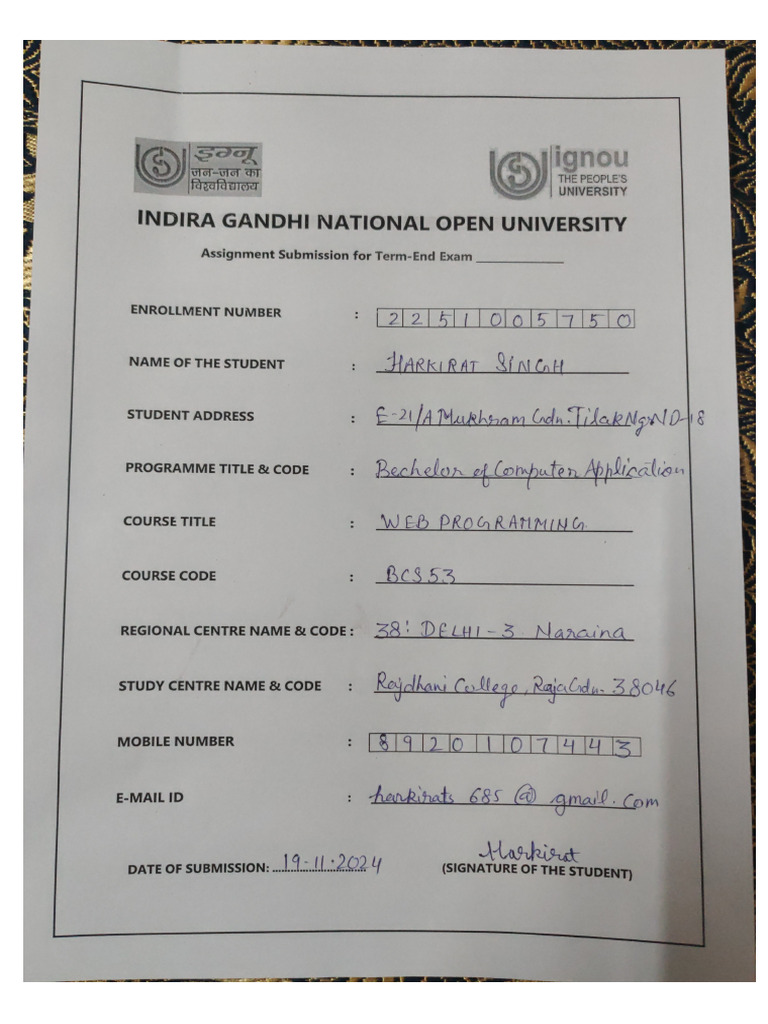 इग्नू
जन-जन का
विश्वविद्यालय
ignou
THE PEOPLE'S
UNIVERSITY
INDIRA GANDHI NATIONAL OPEN UNIVERSITY
Assignment Submission for Term-End Exam ____________
ENROLLMENT NUMBER : 2251005750
NAME OF THE STUDENT : HARKIRAT SINGH
STUDENT ADDRESS : E-21/A Mukhram Gdn. Tilak Ng. ND-18
PROGRAMME TITLE & CODE : Bechelor of Computer Application
COURSE TITLE : WEB PROGRAMMING
COURSE CODE : BCS53
REGIONAL CENTRE NAME & CODE : 38: DELHI-3 Naraina
STUDY CENTRE NAME & CODE : Rajdhani College, Raja Gdn. 38046
MOBILE NUMBER : 8920107443
E-MAIL ID : harkirats685@gmail.com
DATE OF SUBMISSION: 19-11-2024
Harkirat
(SIGNATURE OF THE STUDENT)